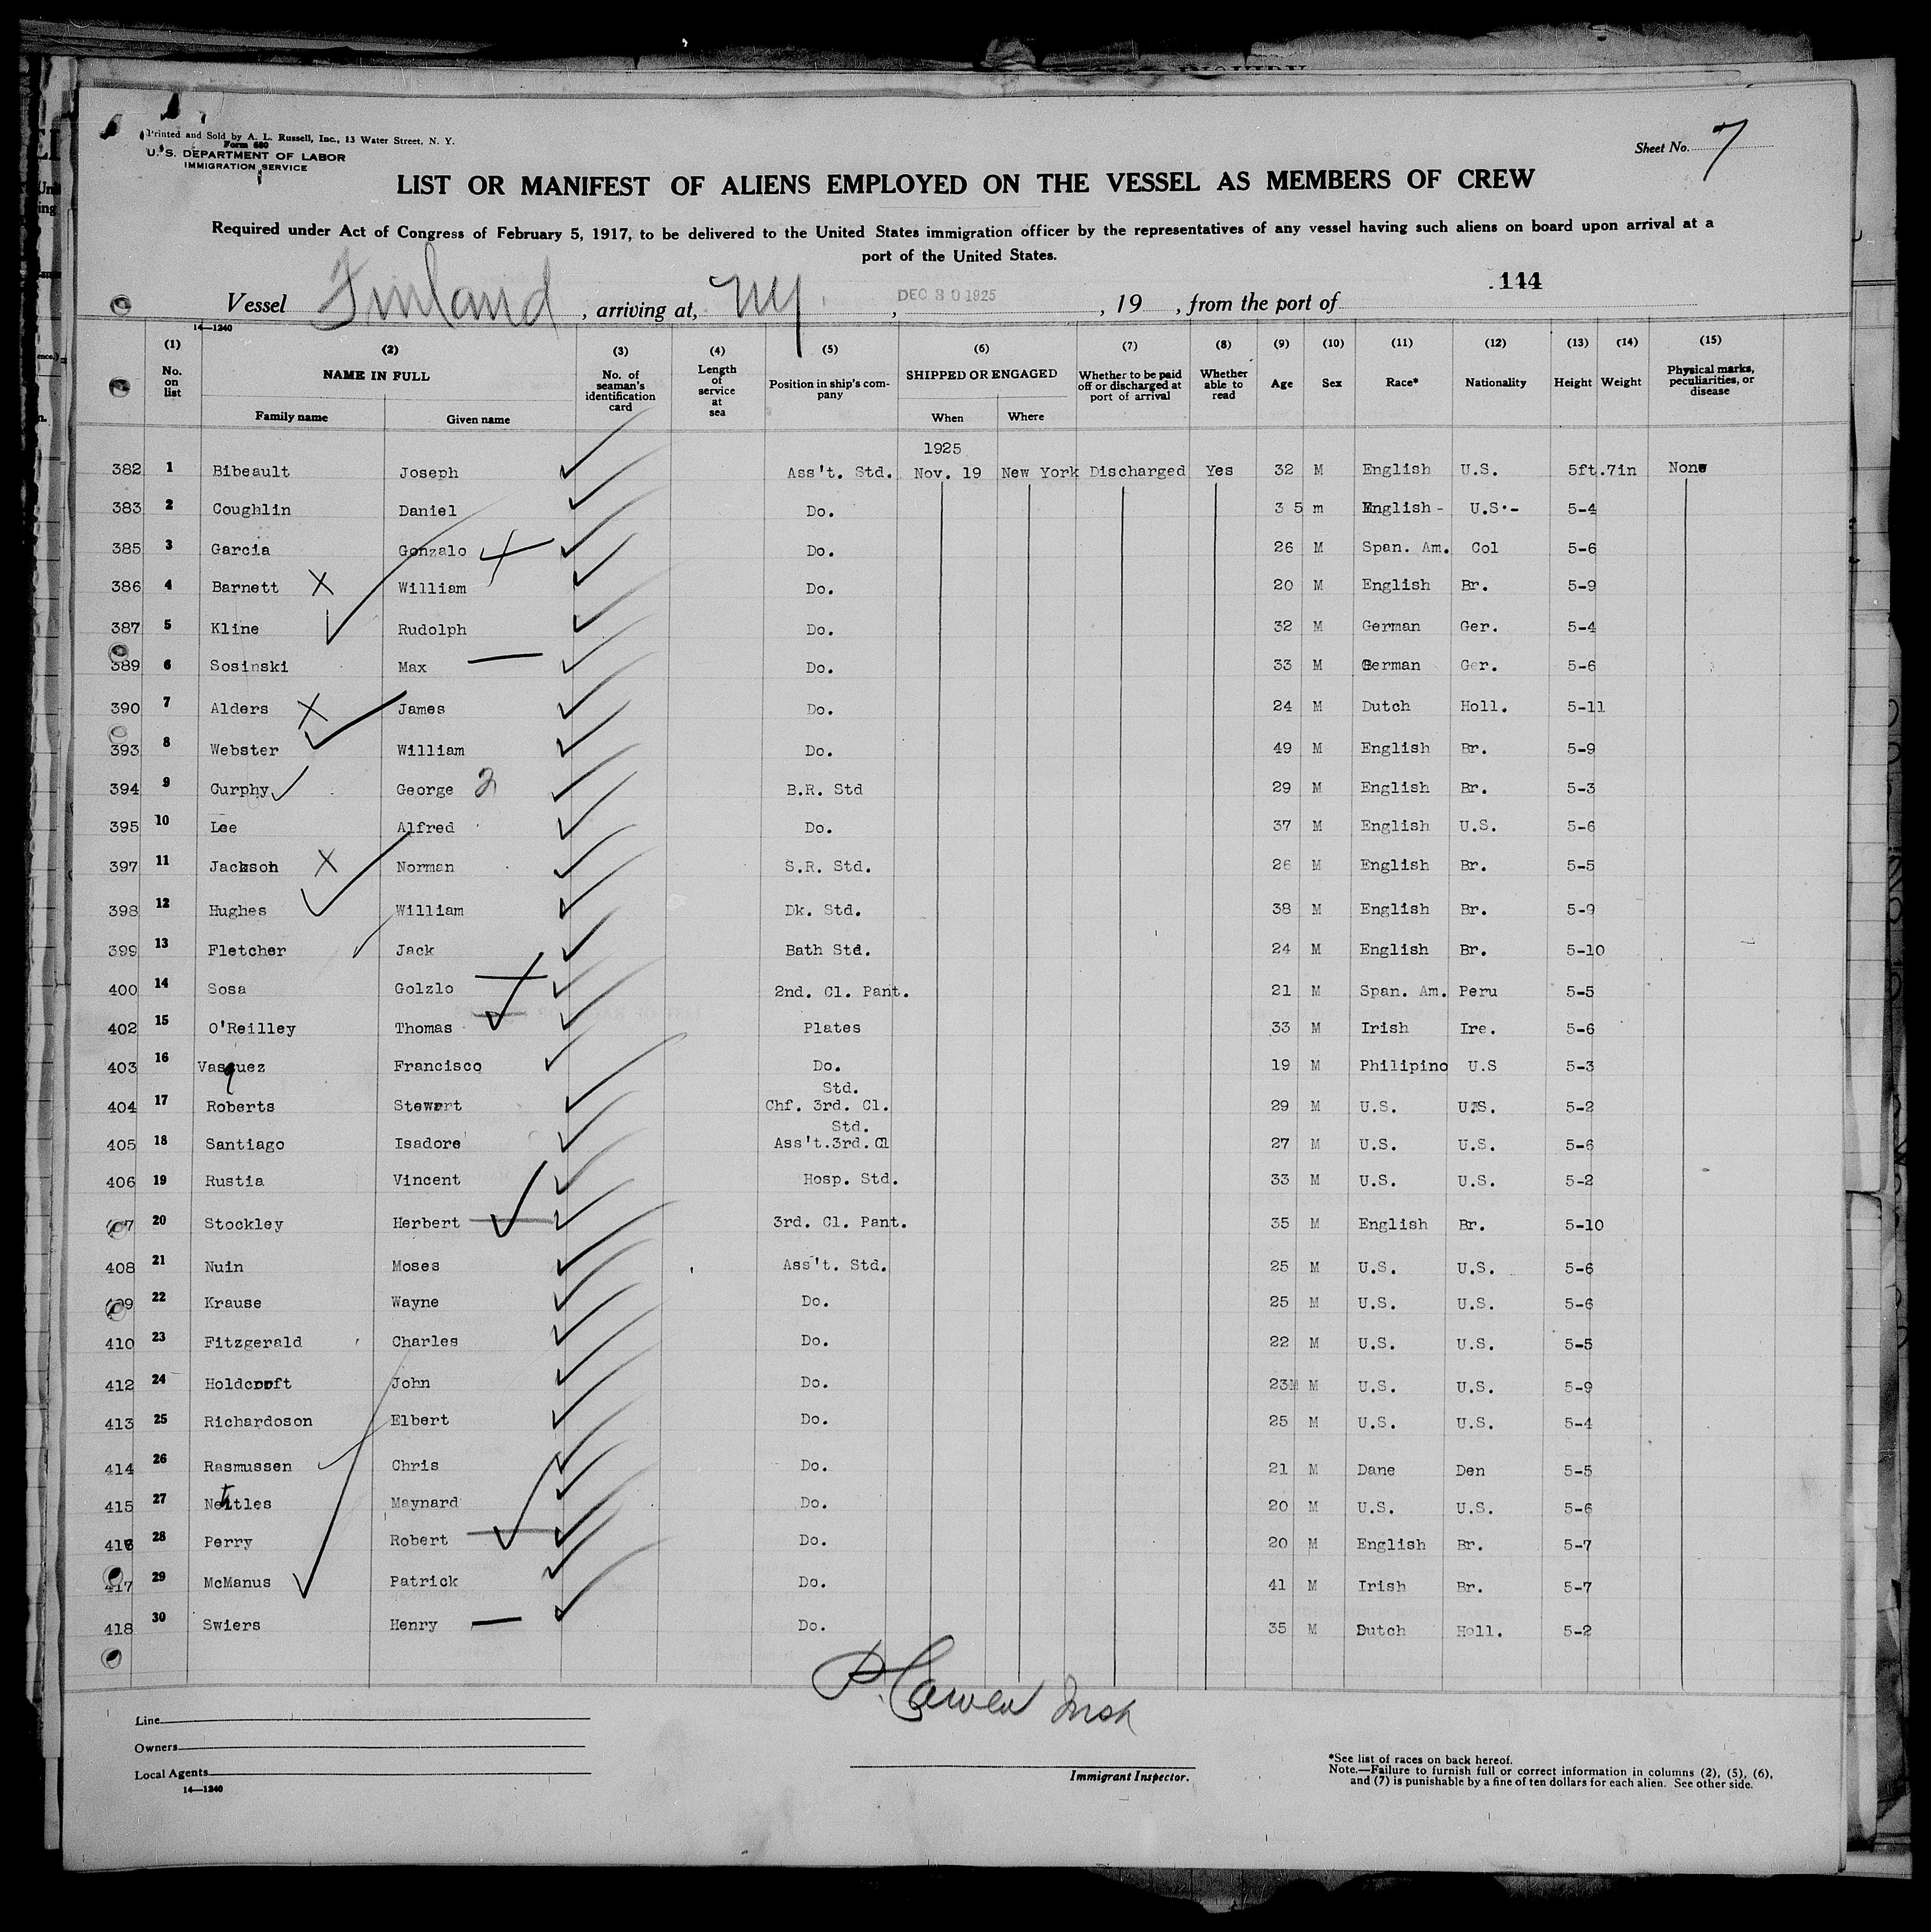 Printed and Sold by A. L. Russell, Inc., 13 Water Street, N. Y.
Form 680
U. S. DEPARTMENT OF LABOR
IMMIGRATION SERVICE
Sheet No. 7
LIST OR MANIFEST OF ALIENS EMPLOYED ON THE VESSEL AS MEMBERS OF CREW
Required under Act of Congress of February 5, 1917, to be delivered to the United States immigration officer by the representatives of any vessel having such aliens on board upon arrival at a
port of the United States.
144
Vessel Finland, arriving at, NY, DEC 30 1925, 19 , from the port of
14—1240
(1) No. on list
(2) NAME IN FULL Family name Given name
(3) No. of seaman's identification card
(4) Length of service at sea
(5) Position in ship's company
(6) SHIPPED OR ENGAGED When Where
(7) Whether to be paid off or discharged at port of arrival
(8) Whether able to read
(9) Age
(10) Sex
(11) Race*
(12) Nationality
(13) Height
(14) Weight
(15) Physical marks, peculiarities, or disease
1925
382 1 Bibeault Joseph Ass't. Std. Nov. 19 New York Discharged Yes 32 M English U.S. 5ft.7in None
383 2 Coughlin Daniel Do. 3 5 m English - U.S.- 5-4
385 3 Garcia Gonzalo Do. 26 M Span. Am. Col 5-6
386 4 Barnett William Do. 20 M English Br. 5-9
387 5 Kline Rudolph Do. 32 M German Ger. 5-4
389 6 Sosinski Max Do. 33 M German Ger. 5-6
390 7 Alders James Do. 24 M Dutch Holl. 5-11
393 8 Webster William Do. 49 M English Br. 5-9
394 9 Curphy George 2 B.R. Std 29 M English Br. 5-3
395 10 Lee Alfred Do. 37 M English U.S. 5-6
397 11 Jackson Norman S.R. Std. 26 M English Br. 5-5
398 12 Hughes William Dk. Std. 38 M English Br. 5-9
399 13 Fletcher Jack Bath Std. 24 M English Br. 5-10
400 14 Sosa Golzlo 2nd. Cl. Pant. 21 M Span. Am. Peru 5-5
402 15 O'Reilley Thomas Plates 33 M Irish Ire. 5-6
403 16 Vasquez Francisco Do. 19 M Philipino U.S 5-3
Std.
404 17 Roberts Stewart Chf. 3rd. Cl. 29 M U.S. U.S. 5-2
Std.
405 18 Santiago Isadore Ass't.3rd.Cl 27 M U.S. U.S. 5-6
406 19 Rustia Vincent Hosp. Std. 33 M U.S. U.S. 5-2
407 20 Stockley Herbert 3rd. Cl. Pant. 35 M English Br. 5-10
408 21 Nuin Moses Ass't. Std. 25 M U.S. U.S. 5-6
409 22 Krause Wayne Do. 25 M U.S. U.S. 5-6
410 23 Fitzgerald Charles Do. 22 M U.S. U.S. 5-5
412 24 Holdcroft John Do. 23 M U.S. U.S. 5-9
413 25 Richardoson Elbert Do. 25 M U.S. U.S. 5-4
414 26 Rasmussen Chris Do. 21 M Dane Den 5-5
415 27 Nettles Maynard Do. 20 M U.S. U.S. 5-6
416 28 Perry Robert Do. 20 M English Br. 5-7
417 29 McManus Patrick Do. 41 M Irish Br. 5-7
418 30 Swiers Henry Do. 35 M Dutch Holl. 5-2
Line
Owners
Local Agents
14—1240
Immigrant Inspector.
*See list of races on back hereof.
Note.—Failure to furnish full or correct information in columns (2), (5), (6),
and (7) is punishable by a fine of ten dollars for each alien. See other side.